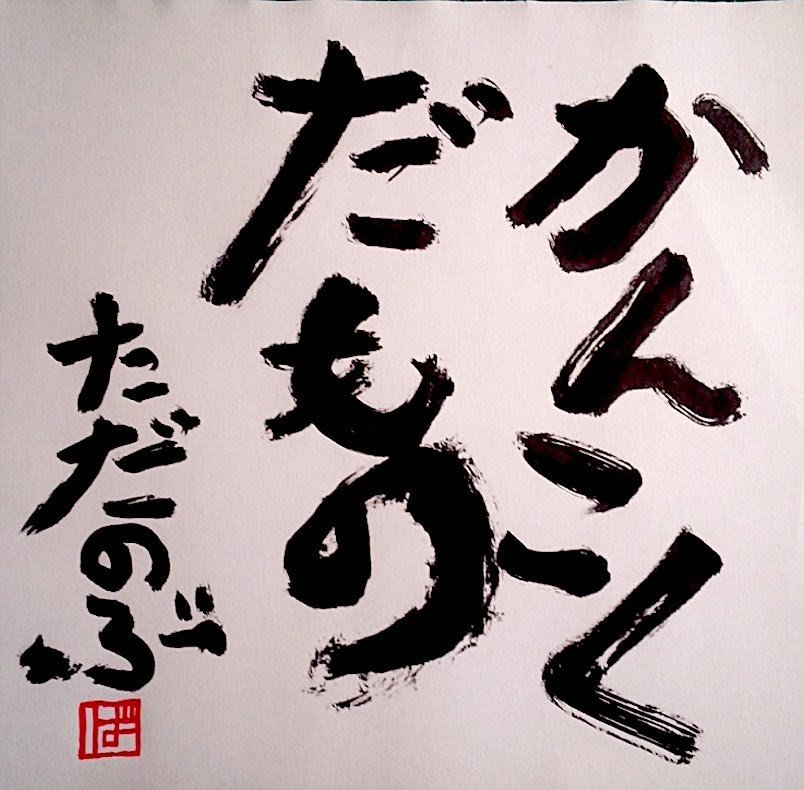 かんこく
だもの
ただのぶ
ば